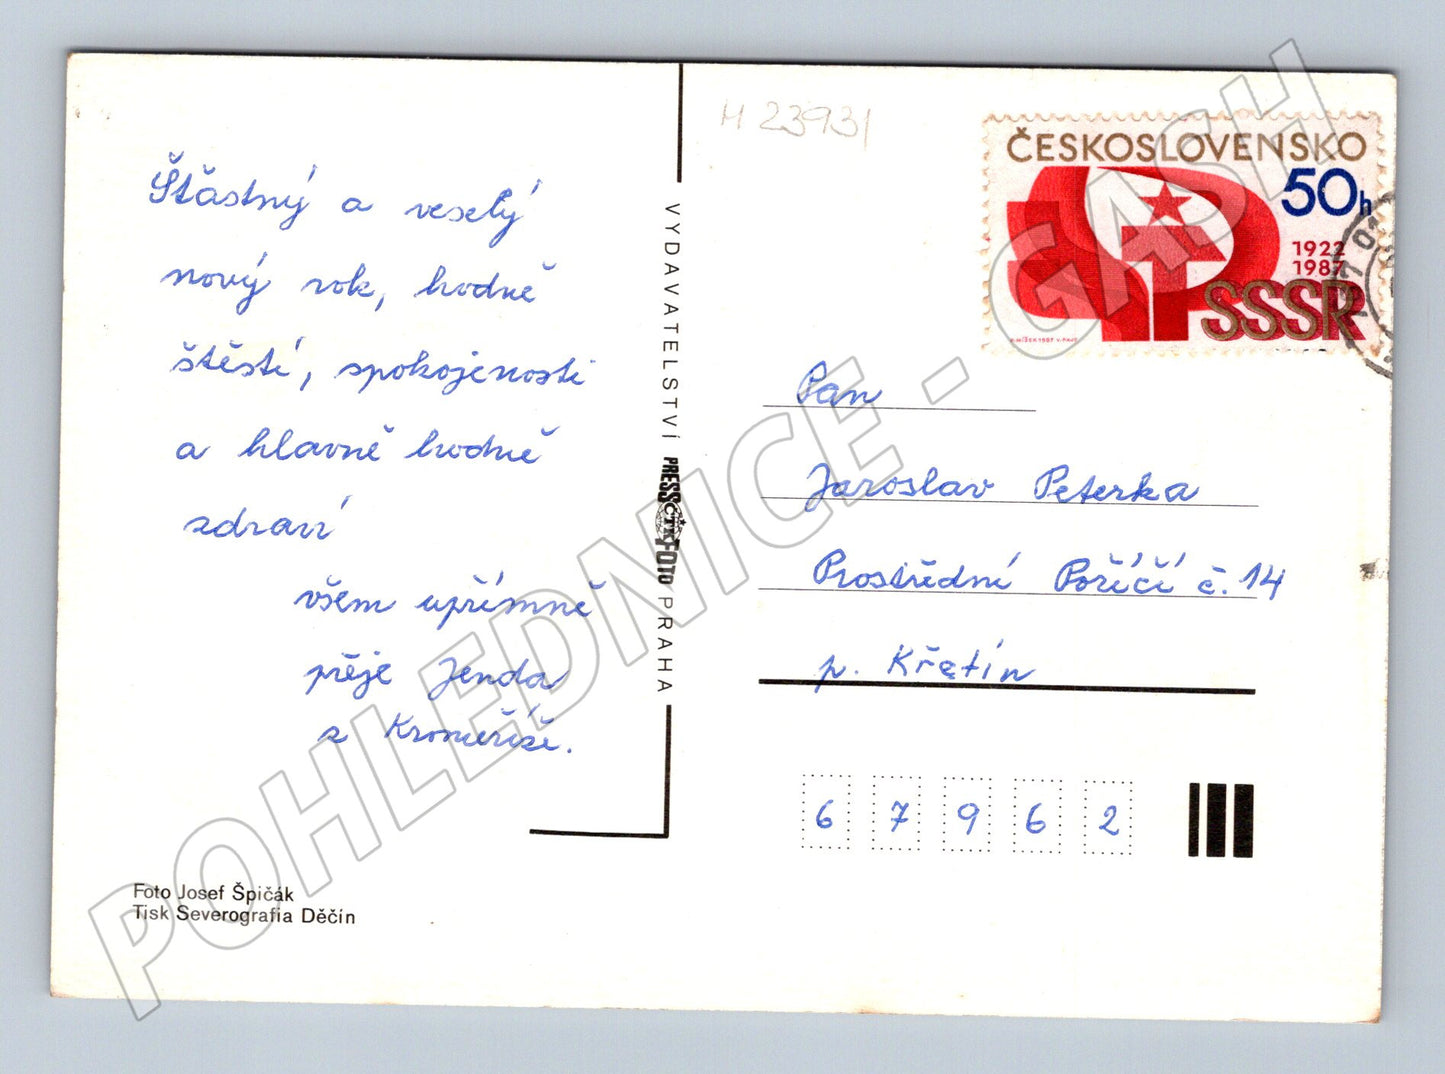 H 23931
ČESKOSLOVENSKO
50h
1922
1987
SSSR
Šťastný a veselý
nový rok, hodně
štěstí, spokojenosti
a hlavně hodně
zdraví
všem upřímně
přeje Jenda
z Kroměříže.
VYDAVATELSTVÍ PRESSFOTO PRAHA
ČTK
Pan
Jaroslav Peterka
Prostřední Poříčí č. 14
p. Křetín
6 7 9 6 2
Foto Josef Špičák
Tisk Severografia Děčín
POHLEDNICE - GASH